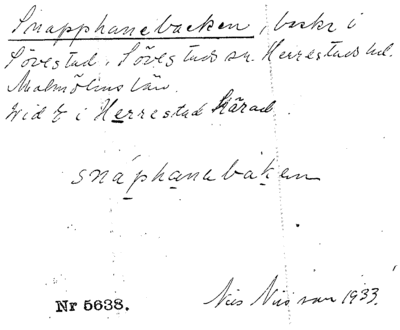 Snapphanebacken, backe i
Sövestad, Sövestads sn. Herrestads hd.
Malmöhus län.
i Herrestad Härad.
snaphanabaken
Nr 5638.
Nils Nilsson 1933.